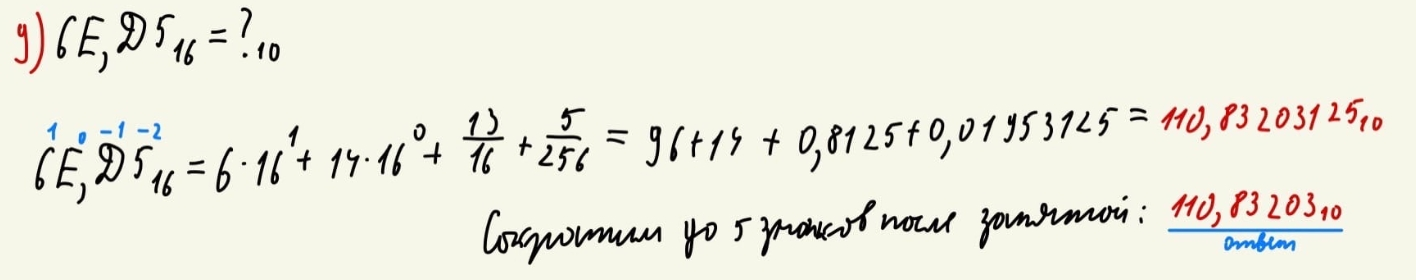 д) 6E,D5₁₆ = ?₁₀
1 0 -1 -2
6E,D5₁₆ = 6·16¹ + 14·16⁰ + 13/16 + 5/256 = 96+14 + 0,8125+0,01953125 = 110,83203125₁₀
Сократим до 5 знаков после запятой: 110,83203₁₀
ответ